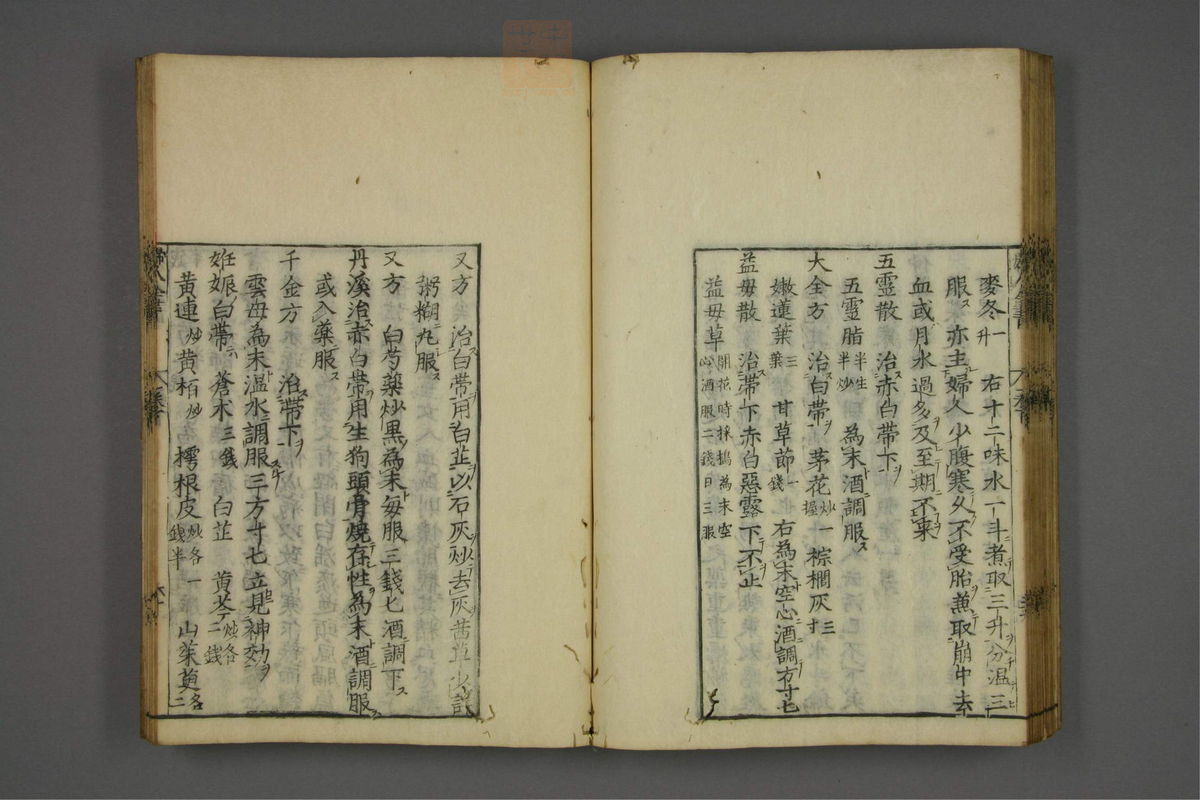 麥冬一升　右十二味水一斗煮取三升分温三
服亦主婦人少腹寒久不受胎兼取崩中去
血或月水過多及至期不來
五靈散　治赤白帶下
五靈脂半生半炒　為末酒調服
大全方　治白帶　茅花炒一握　棕櫚灰三寸
嫩蓮葉三葉　甘草節一錢　右為末空心酒調方寸七
益母散　治帶下赤白惡露下不止
益母草開花時採搗為末空心酒服二錢日三服
又方　治白帶用白芷以石灰炒去灰茜草少許
粥糊丸服
又方　白芍藥炒黒為末每服三錢匕酒調下
丹溪治赤白帶用生狗頭骨燒存性為末酒調服
或入藥服
千金方　治帶下
雲母為末温水調服三方寸七立見神効
妊娠白帶　蒼朮三錢　白芷　黄芩炒各二錢
黄連炒黄栢炒　樗根皮炒各一錢半　山茱萸各二